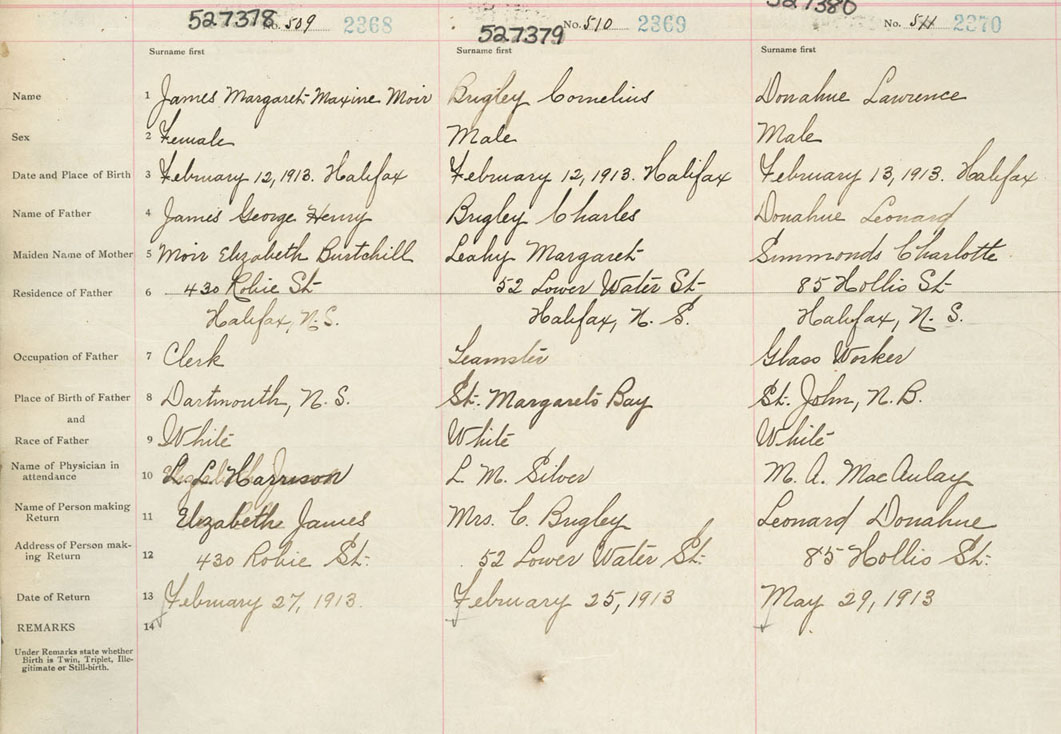 527378 No. 509 2368 527379 No. 510 2369 527380 No. 511 2370
Surname first Surname first Surname first
Name 1 James Margaret Maxine Moir Brigley Cornelius Donahue Lawrence
Sex 2 Female Male Male
Date and Place of Birth 3 February 12, 1913. Halifax February 12, 1913. Halifax February 13, 1913. Halifax
Name of Father 4 James George Henry Brigley Charles Donahue Leonard
Maiden Name of Mother 5 Moir Elizabeth Burtchill Leahy Margaret Simmonds Charlotte
Residence of Father 6 430 Robie St. 52 Lower Water St. 85 Hollis St.
Halifax, N.S. Halifax, N. S. Halifax, N. S.
Occupation of Father 7 Clerk Teamster Glass Worker
Place of Birth of Father 8 Dartmouth, N. S. St. Margarets Bay St. John, N. B.
and
Race of Father 9 White White White
Name of Physician in
attendance 10 Harrison L. M. Silver M. A. MacAulay
Name of Person making
Return 11 Elizabeth James Mrs. C. Brigley Leonard Donahue
Address of Person mak-
ing Return 12 430 Robie St. 52 Lower Water St. 85 Hollis St.
Date of Return 13 February 27, 1913. February 25, 1913 May 29, 1913
REMARKS 14
Under Remarks state whether
Birth is Twin, Triplet, Ille-
gitimate or Still-birth.